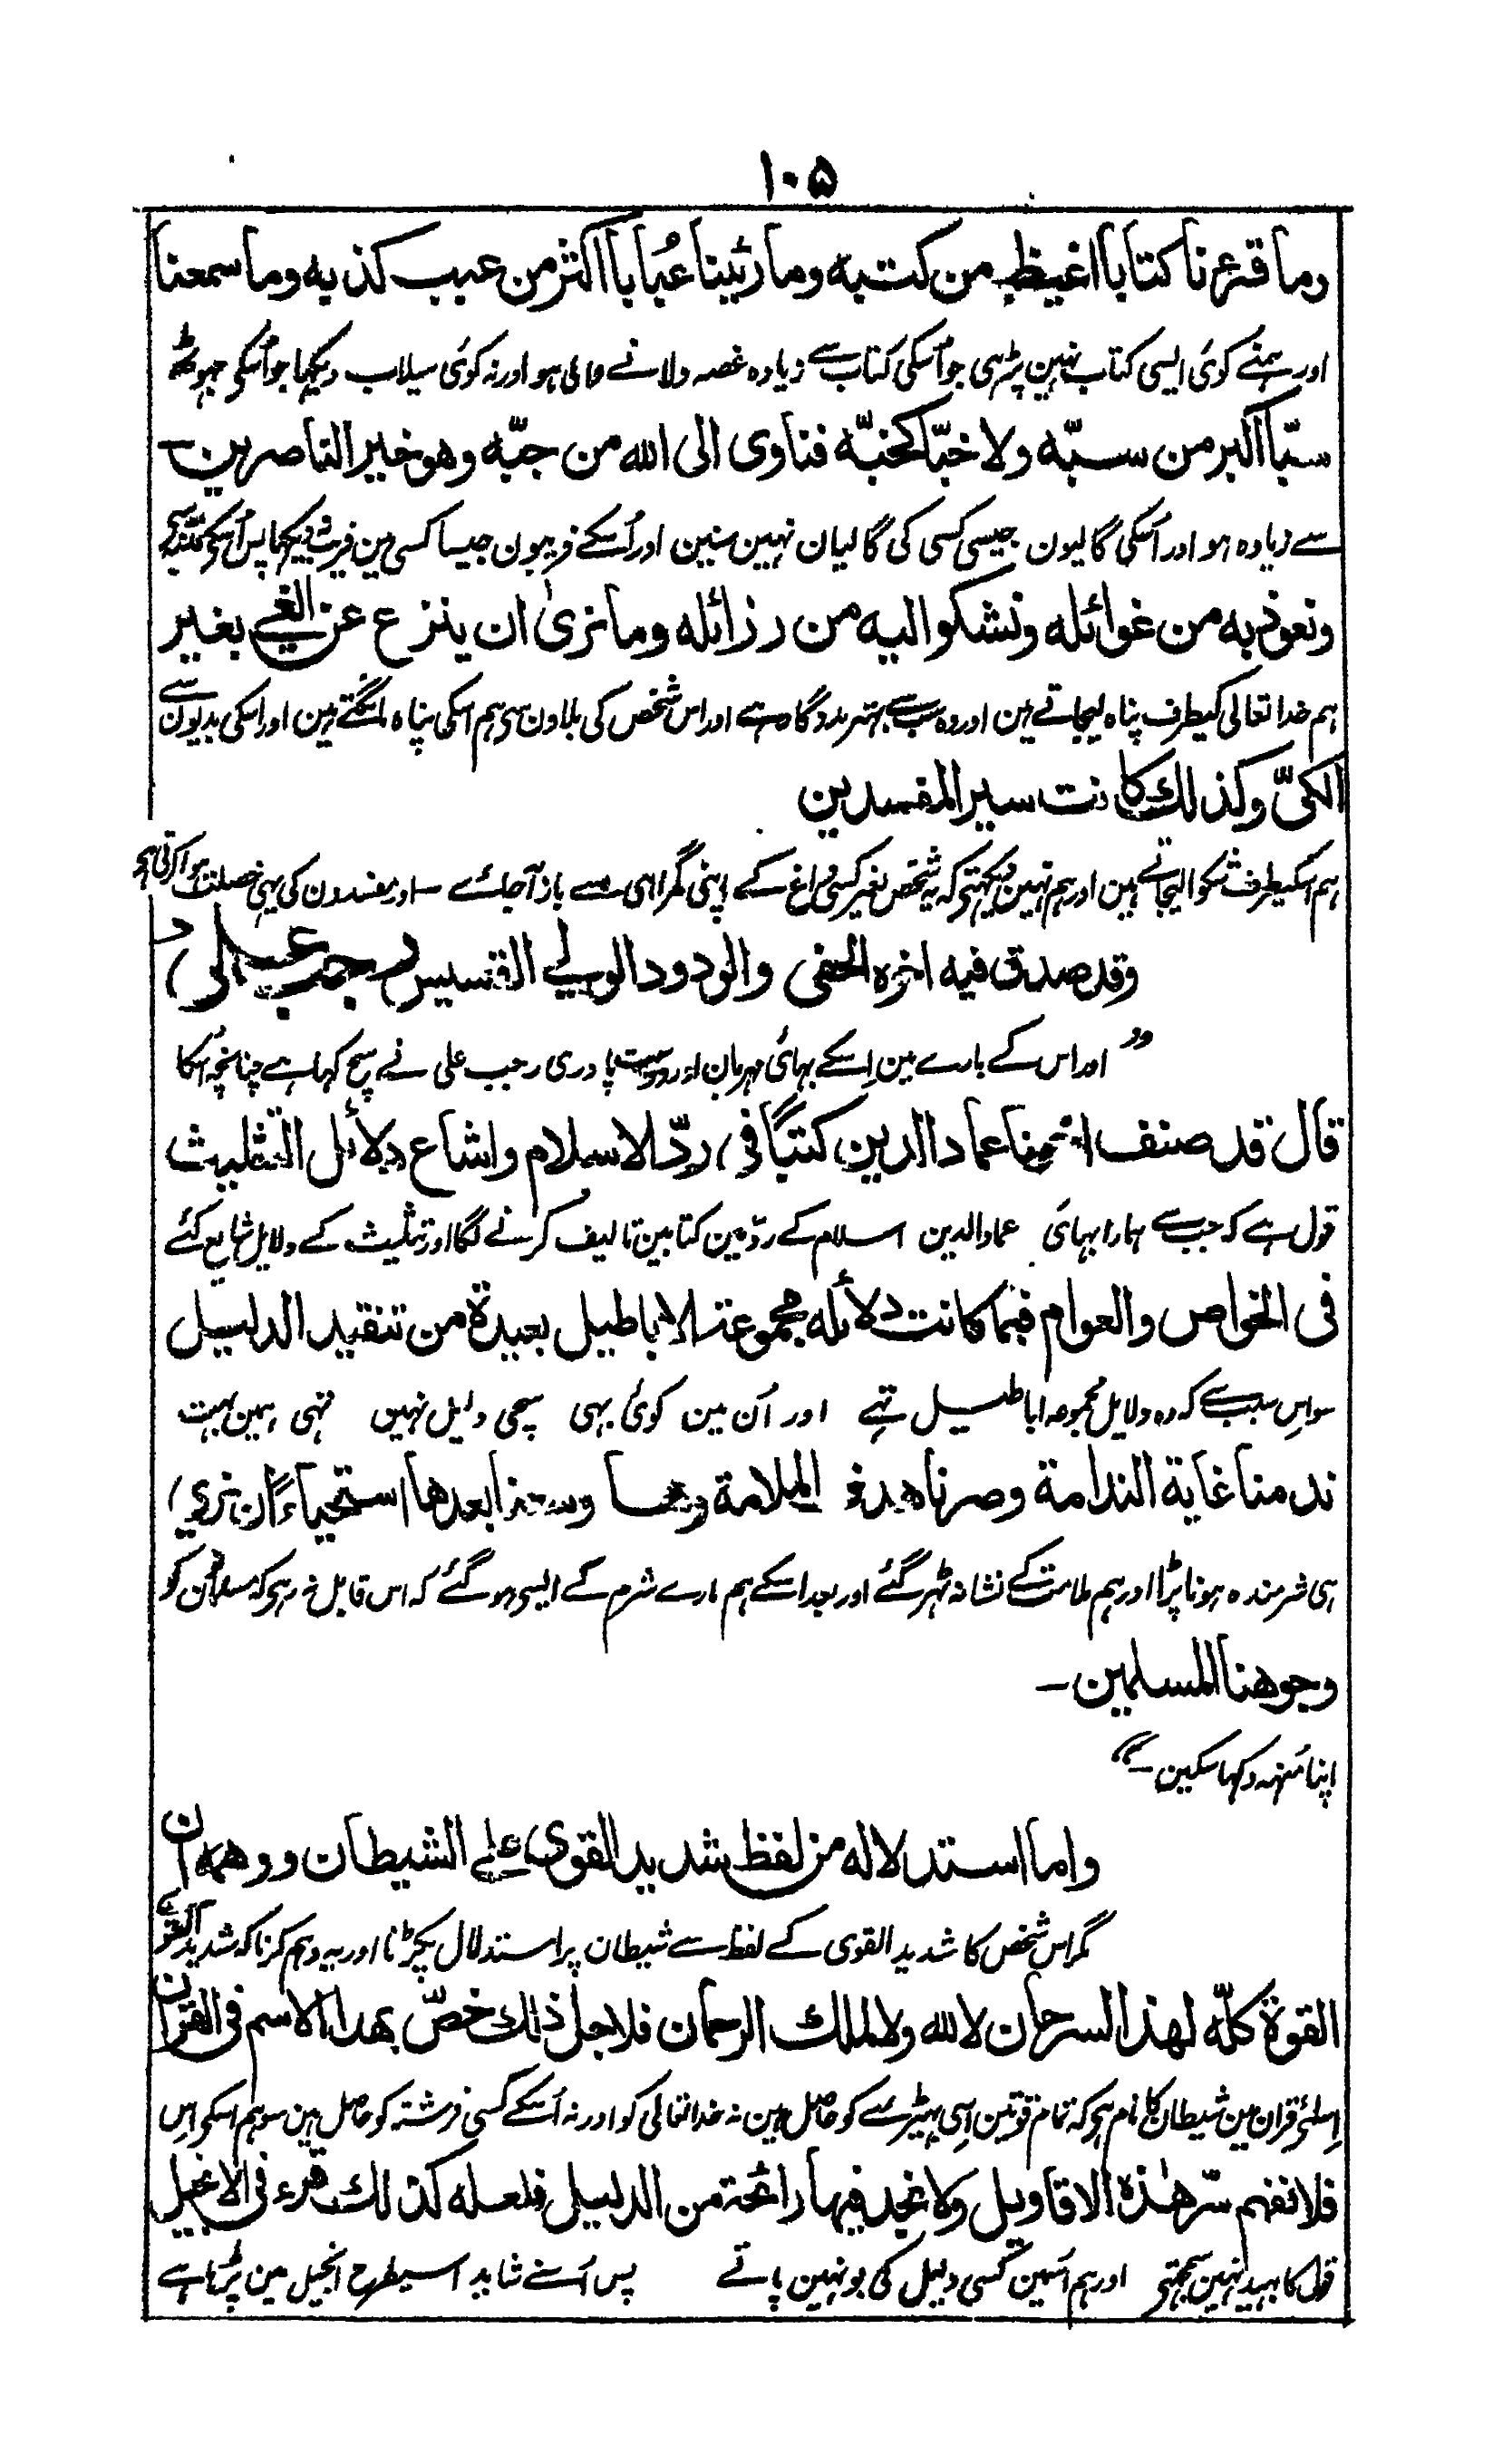 ۱۰۵
وما قرءنا كتابا اغيظ من كتبه وما رئينا عُبَابا اكثر من عبب كذبه وما سمعنا
اور ہمنے کوئی ایسی کتاب نہین پڑہی جو اُسکی کتاب سے زیادہ غصہ دلانے والی ہو اور نہ کوئی سیلاب دیکھا جو اُسکی جہوٹھ
سبّا اكبر من سبّه ولا خبّا كخبّه فناوى الى الله من جبّه وهو خير الناصرين—
سے زیادہ ہو اور اُسکی گالیون جیسی کسی کی گالیان نہین سنین اور اُسکے فریبون جیسا کسی مین فریب دیکھا پس اُسکے
ونعوذ به من غوائله ونشكوا اليه من رذائله وما نرىٰ ان ينزع عن الغى بغير
ہم خدا تعالی کیطرف پناہ لیجاتے ہین اور وہ سب سے بہتر مددگار ہے اور اس شخص کی بلاون سے ہم اسکی پناہ مانگتے ہین اور اسکی بدیون سے
الكىّ وكذلك كانت سير المفسدين
ہم اسکیطرف شکوا لیجاتے ہین اور ہم نہین دیکہتے کہ یہ شخص بغیر کسی داغ کے اپنی گمراہی سے باز آجائے — اور مفسدون کی یہی خصلت ہوا کرتی ہے
وقد صدق فيه اخوه الحفى والودود الولى القسيس رجب على
” اور اس کے بارے مین اِسکے بہائی مہربان اور دوست پادری رجب علی نے سچ کہا ہے چنانچہ اُسکا
قال قد صنف اخونا عماد الدين كتبًا فى ردّ الاسلام واشاع دلائل التثليث
قول ہے کہ جب سے ہمارا بہائی عماد الدین اسلام کے ردّ مین کتابین تالیف کرنے لگا اور تثلیث کے دلایل شایع کئے
فى الخواص والعوام فبما كانت دلائله مجموعة الاباطيل بعيدة من تنقيد الدليل
سو اِس سبب سے کہ وہ دلایل مجموعہ اباطیل تہے اور اُن مین کوئی بہی سچی دلیل نہین تہی ہمین بہت
ندمنا غاية الندامة وصرنا هدف الملامة وما وسعنا بعدها استحياءً ان نرى
ہی شرمندہ ہونا پڑا اور ہم ملامت کے نشانہ ٹہر گئے اور بعد اسکے ہم مارے شرم کے ایسے ہو گئے کہ اس قابل نہ رہے کہ مسلمانون کو
وجوهنا المسلمين—
اپنا مُنہہ دکہا سکین —“
واما استدلاله من لفظ شديد القوى على الشيطان ووهمه ان
مگر اس شخص کا شدید القوی کے لفظ سے شیطان پر استدلال پکڑنا اور یہ وہم کرنا کہ شدید القوے
القوة كلّه لهذا السرحان لا لله ولا لملك الرحمان فلاجل ذلك خصّ بهذا الاسم فى القران
اِسلئے قران مین شیطان کا نام ہے کہ تمام قوتین اسی بہیڑیے کو حاصل ہین نہ خدا تعالی کو اور نہ اُسکے کسی فرشتہ کو حاصل ہین سو ہم اسکے اِس
فلا نفهم سرّ هٰذه الاقاويل ولا نجد فيها رائحة من الدليل فلعله كذلك قرء فى الانجيل
قول کا بہید نہین سمجہتے اور ہم اسمین کسی دلیل کی بو نہین پاتے پس اُسنے شاید اسیطرح انجیل مین پڑہا ہے